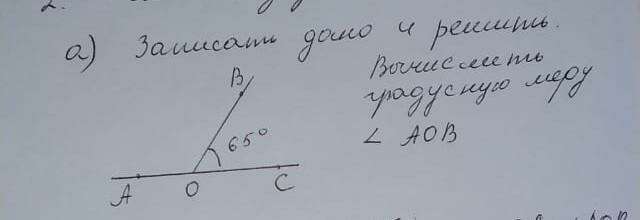 2.
а) Записать дано и решить.
Вычислить
градусную меру
∠ АОВ
В
65°
А О С